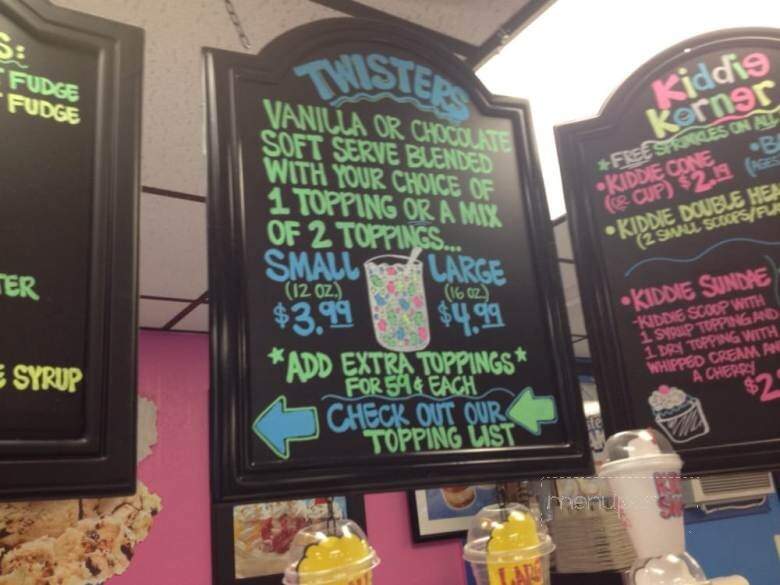 S:
FUDGE
FUDGE
TER
SYRUP
TWISTERS
VANILLA OR CHOCOLATE
SOFT SERVE BLENDED
WITH YOUR CHOICE OF
1 TOPPING OR A MIX
OF 2 TOPPINGS...
SMALL
(12 OZ.)
$3.99
LARGE
(16 OZ.)
$4.99
*ADD EXTRA TOPPINGS*
FOR 59¢ EACH
CHECK OUT OUR
TOPPING LIST
Kiddie
Korner
*FREE SPRINKLES ON
•KIDDIE CONE
(OR CUP) $2.19
•KIDDIE DOUBLE
(2 SMALL SCOOPS/
•KIDDIE SUNDAE
-KIDDIE SCOOP WITH
1 SYRUP TOPPING AND
1 DRY TOPPING WITH
WHIPPED CREAM
A CHERRY